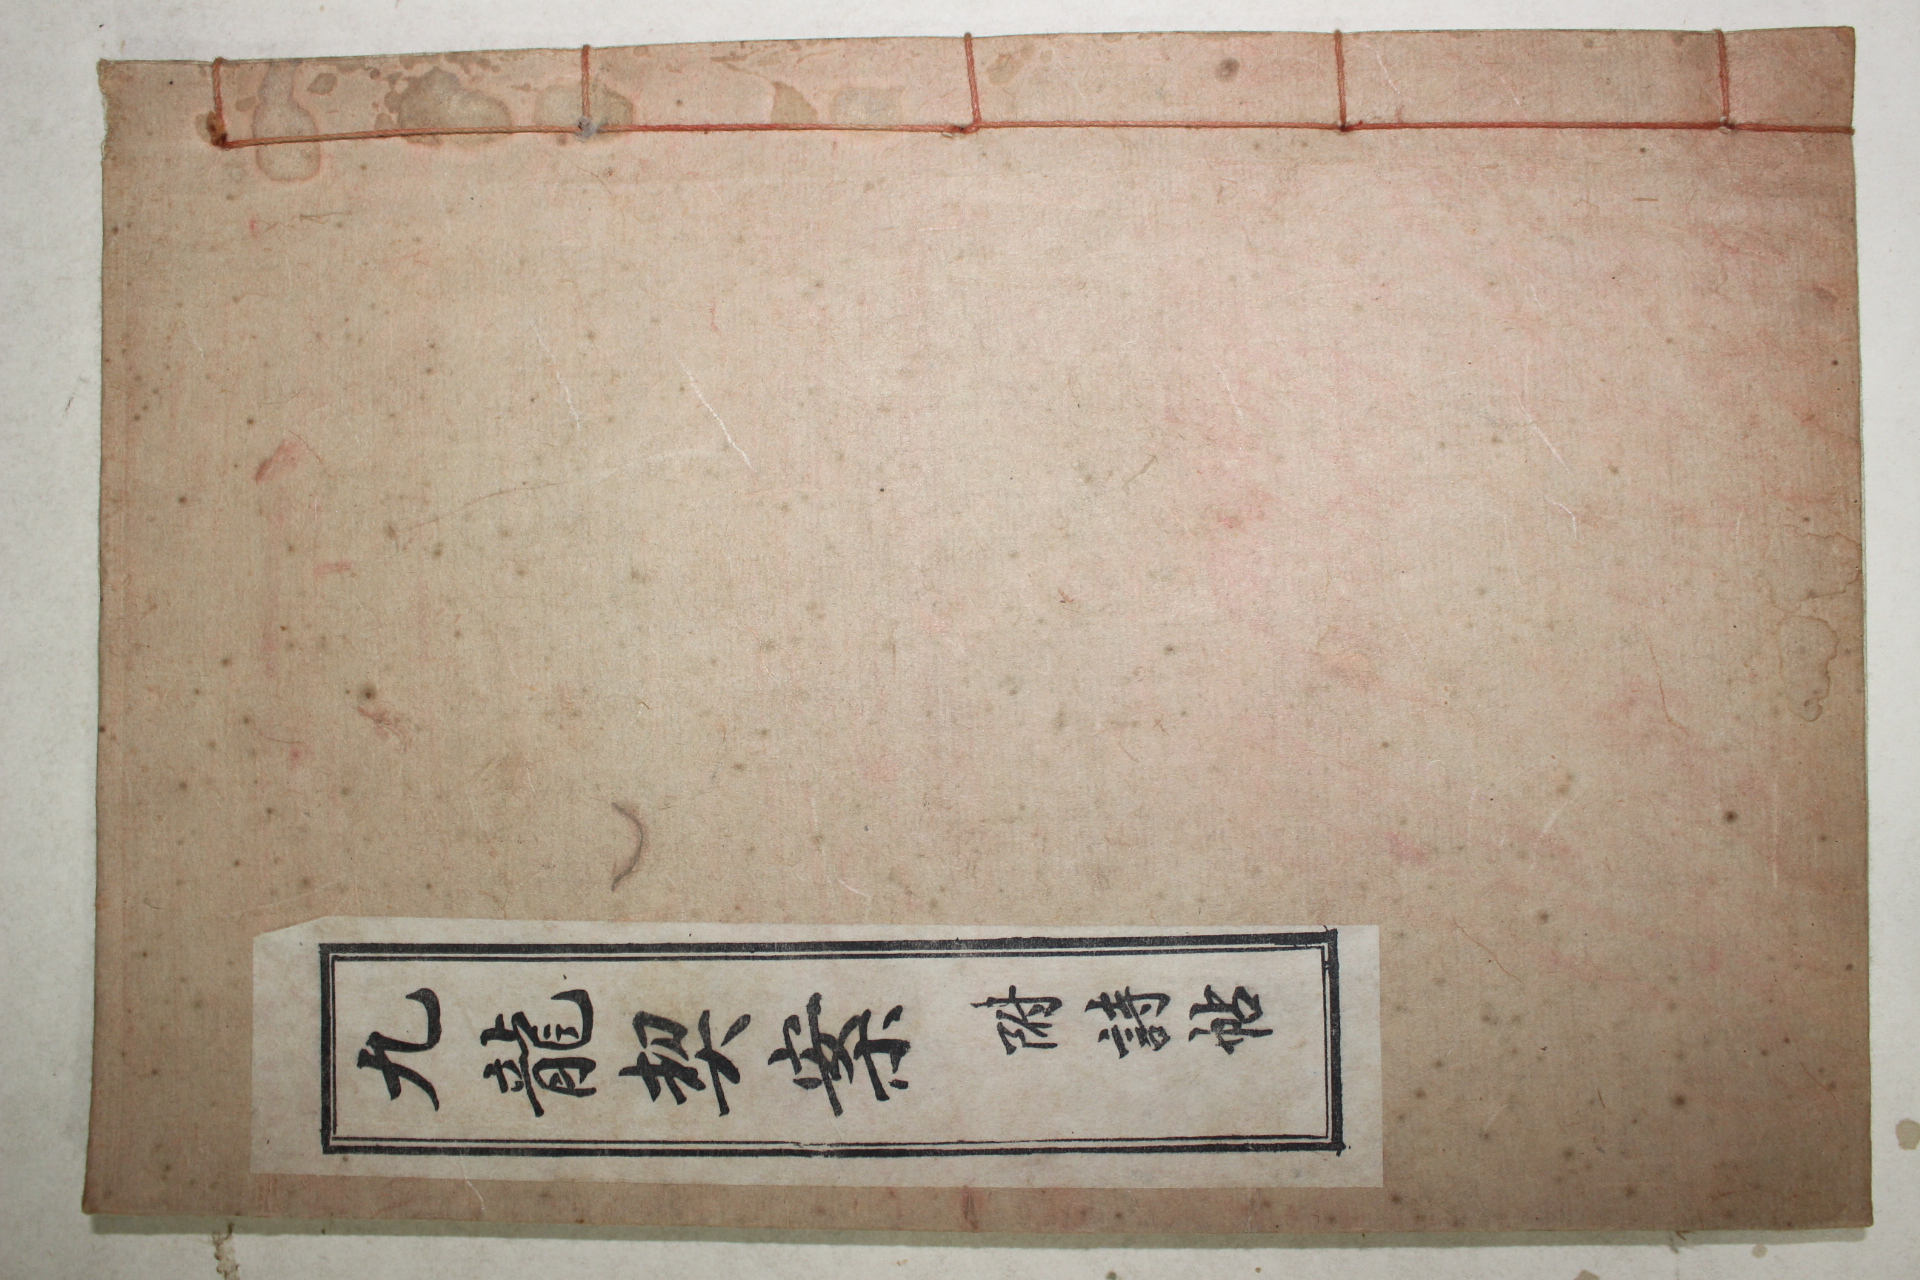 九龍契案 附詩帖